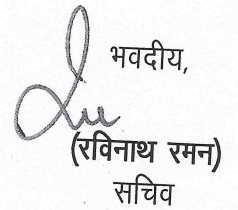 भवदीय,
(रविनाथ रमन)
सचिव